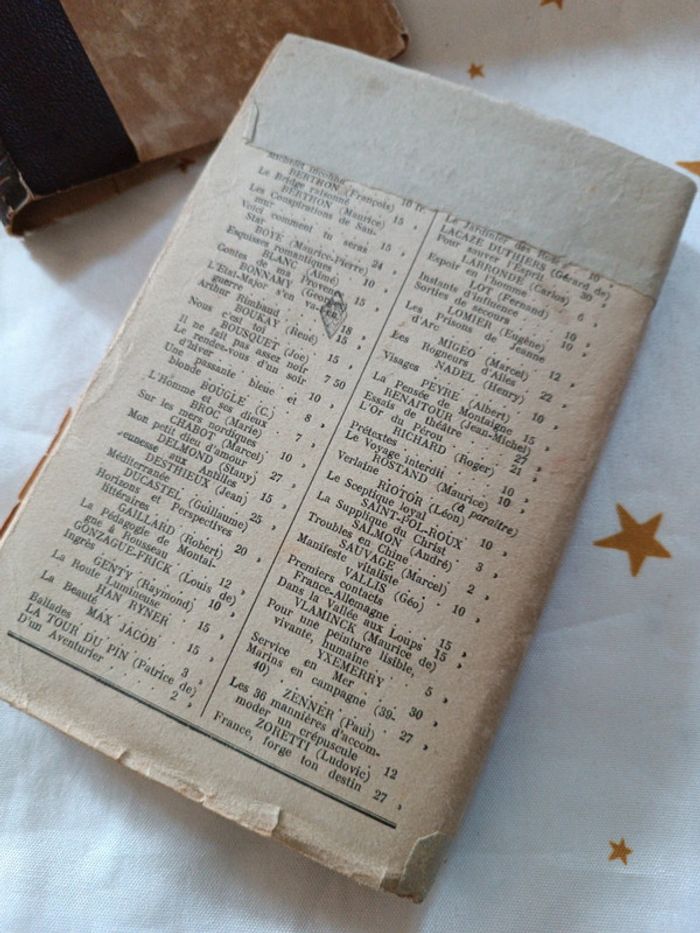 10 fr.
BERTHON (François)
Le Bridge raisonné . . 15 »
BERTHON (Maurice)
Les Conspirations de Sau-
mur . . 15 »
Voici comment tu seras
Star . . 24 »
BOYÉ (Maurice-Pierre)
Esquisses romantiques . 10 »
BLANC (Aimé)
Contes de ma Provence 15 »
BONNAMY
L'Etat-Major s'en va-t-en
guerre . . 18
Arthur Rimbaud . 15 »
BOUKAY (René)
Nous c'est toi . . 15 »
BOUSQUET (Joe)
Il ne fait pas assez noir
Le rendez-vous d'un soir
d'hiver . . 7 50
Une passante bleue et
blonde . . 10 »
BOUGLÉ (C.)
L'Homme et ses dieux 8 »
BROC (Marie)
Sur les mers nordiques 7 »
CHABOT (Marcel)
Mon petit dieu d'amour 10 »
DELMOND (Stany)
Jeunesse aux Antilles 15 »
DESTHIEUX (Jean)
Méditerranée . . 25 »
DUCASTEL (Guillaume)
Horizons et Perspectives
littéraires . . 20 »
GAILLARD (Robert)
La Pédagogie de Montai-
gne à Rousseau . 12 »
GONZAGUE-FRICK (Louis de)
Ingres . . 10 »
GENTY (Raymond)
La Route Lumineuse . 15 »
HAN RYNER
La Beauté . . 15 »
MAX JACOB
Ballades . . 3 »
LA TOUR DU PIN (Patrice de)
D'un Aventurier . . 2 »
Le Jardinier des 10 »
LACAZE DUTHIERS (Gérard de)
Pour sauver l'Esprit . 30 »
LARRONDE (Carlos)
Espoir en l'homme . 6 »
LOT (Fernand)
Instants d'influence . 10 »
Sorties de secours . 10 »
LOMIER (Eugène)
Les Prisons de Jeanne
d'Arc . . 12 »
MIGEO (Marcel)
Les Rogneurs d'Ailes 22 »
NADEL (Henry)
Visages . . 10 »
PEYRE (Albert)
La Pensée de Montaigne 15 »
RENAITOUR (Jean-Michel)
Essais de théâtre . 27 »
L'Or du Pérou . . 21 »
RICHARD (Roger)
Prétextes . . 10 »
Le Voyage interdit . 10 »
ROSTAND (Maurice)
Verlaine . (à paraître)
RIOTOR (Léon)
Le Sceptique loyal . 10 »
SAINT-POL-ROUX
La Supplique du Christ 3 »
SALMON (André)
Troubles en Chine . 2 »
SAUVAGE (Marcel)
Manifeste vitaliste . 10 »
VALLIS (Géo)
Premiers contacts
France-Allemagne . 15 »
Dans la Vallée aux Loups 15 »
VLAMINCK (Maurice de)
Pour une peinture lisible,
vivante, humaine . 5 »
YXEMERRY
Service en Mer . . 30 »
Marins en campagne (39-
40) . . 27 »
ZENNER (Paul)
Les 36 mannières d'accom-
moder un crépuscule 12
ZORETTI (Ludovic)
France, forge ton destin 27 »